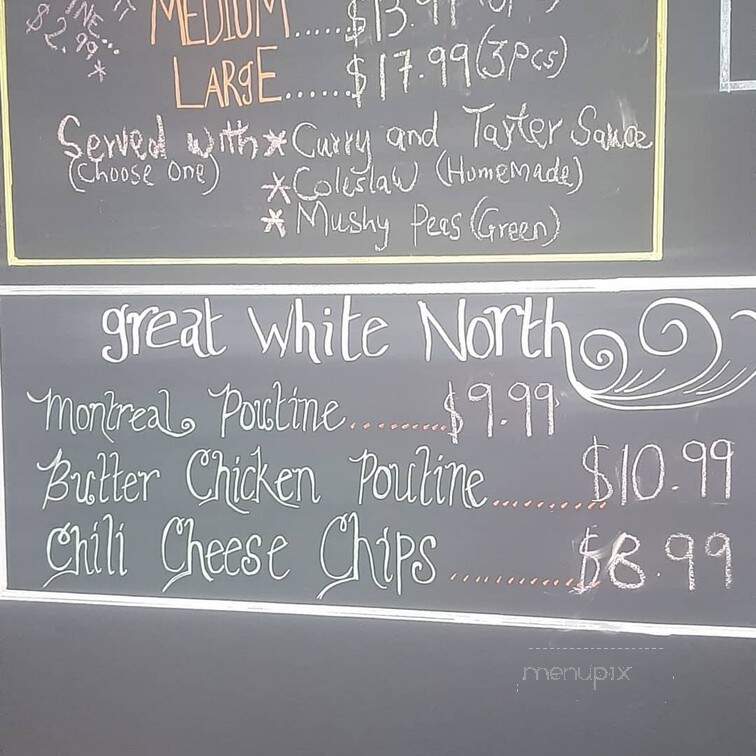 INE...
$2.99*
MEDIUM.....$13.99
LARgE......$17.99 (3Pcs)
Served with * Curry and Tarter Sauce
(Choose One)
* Coleslaw (Homemade)
* Mushy Peas (Green)
great White North
Montreal Poutine.........$9.99
Butter Chicken Poutine..........$10.99
Chili Cheese Chips.............$8.99
menupix